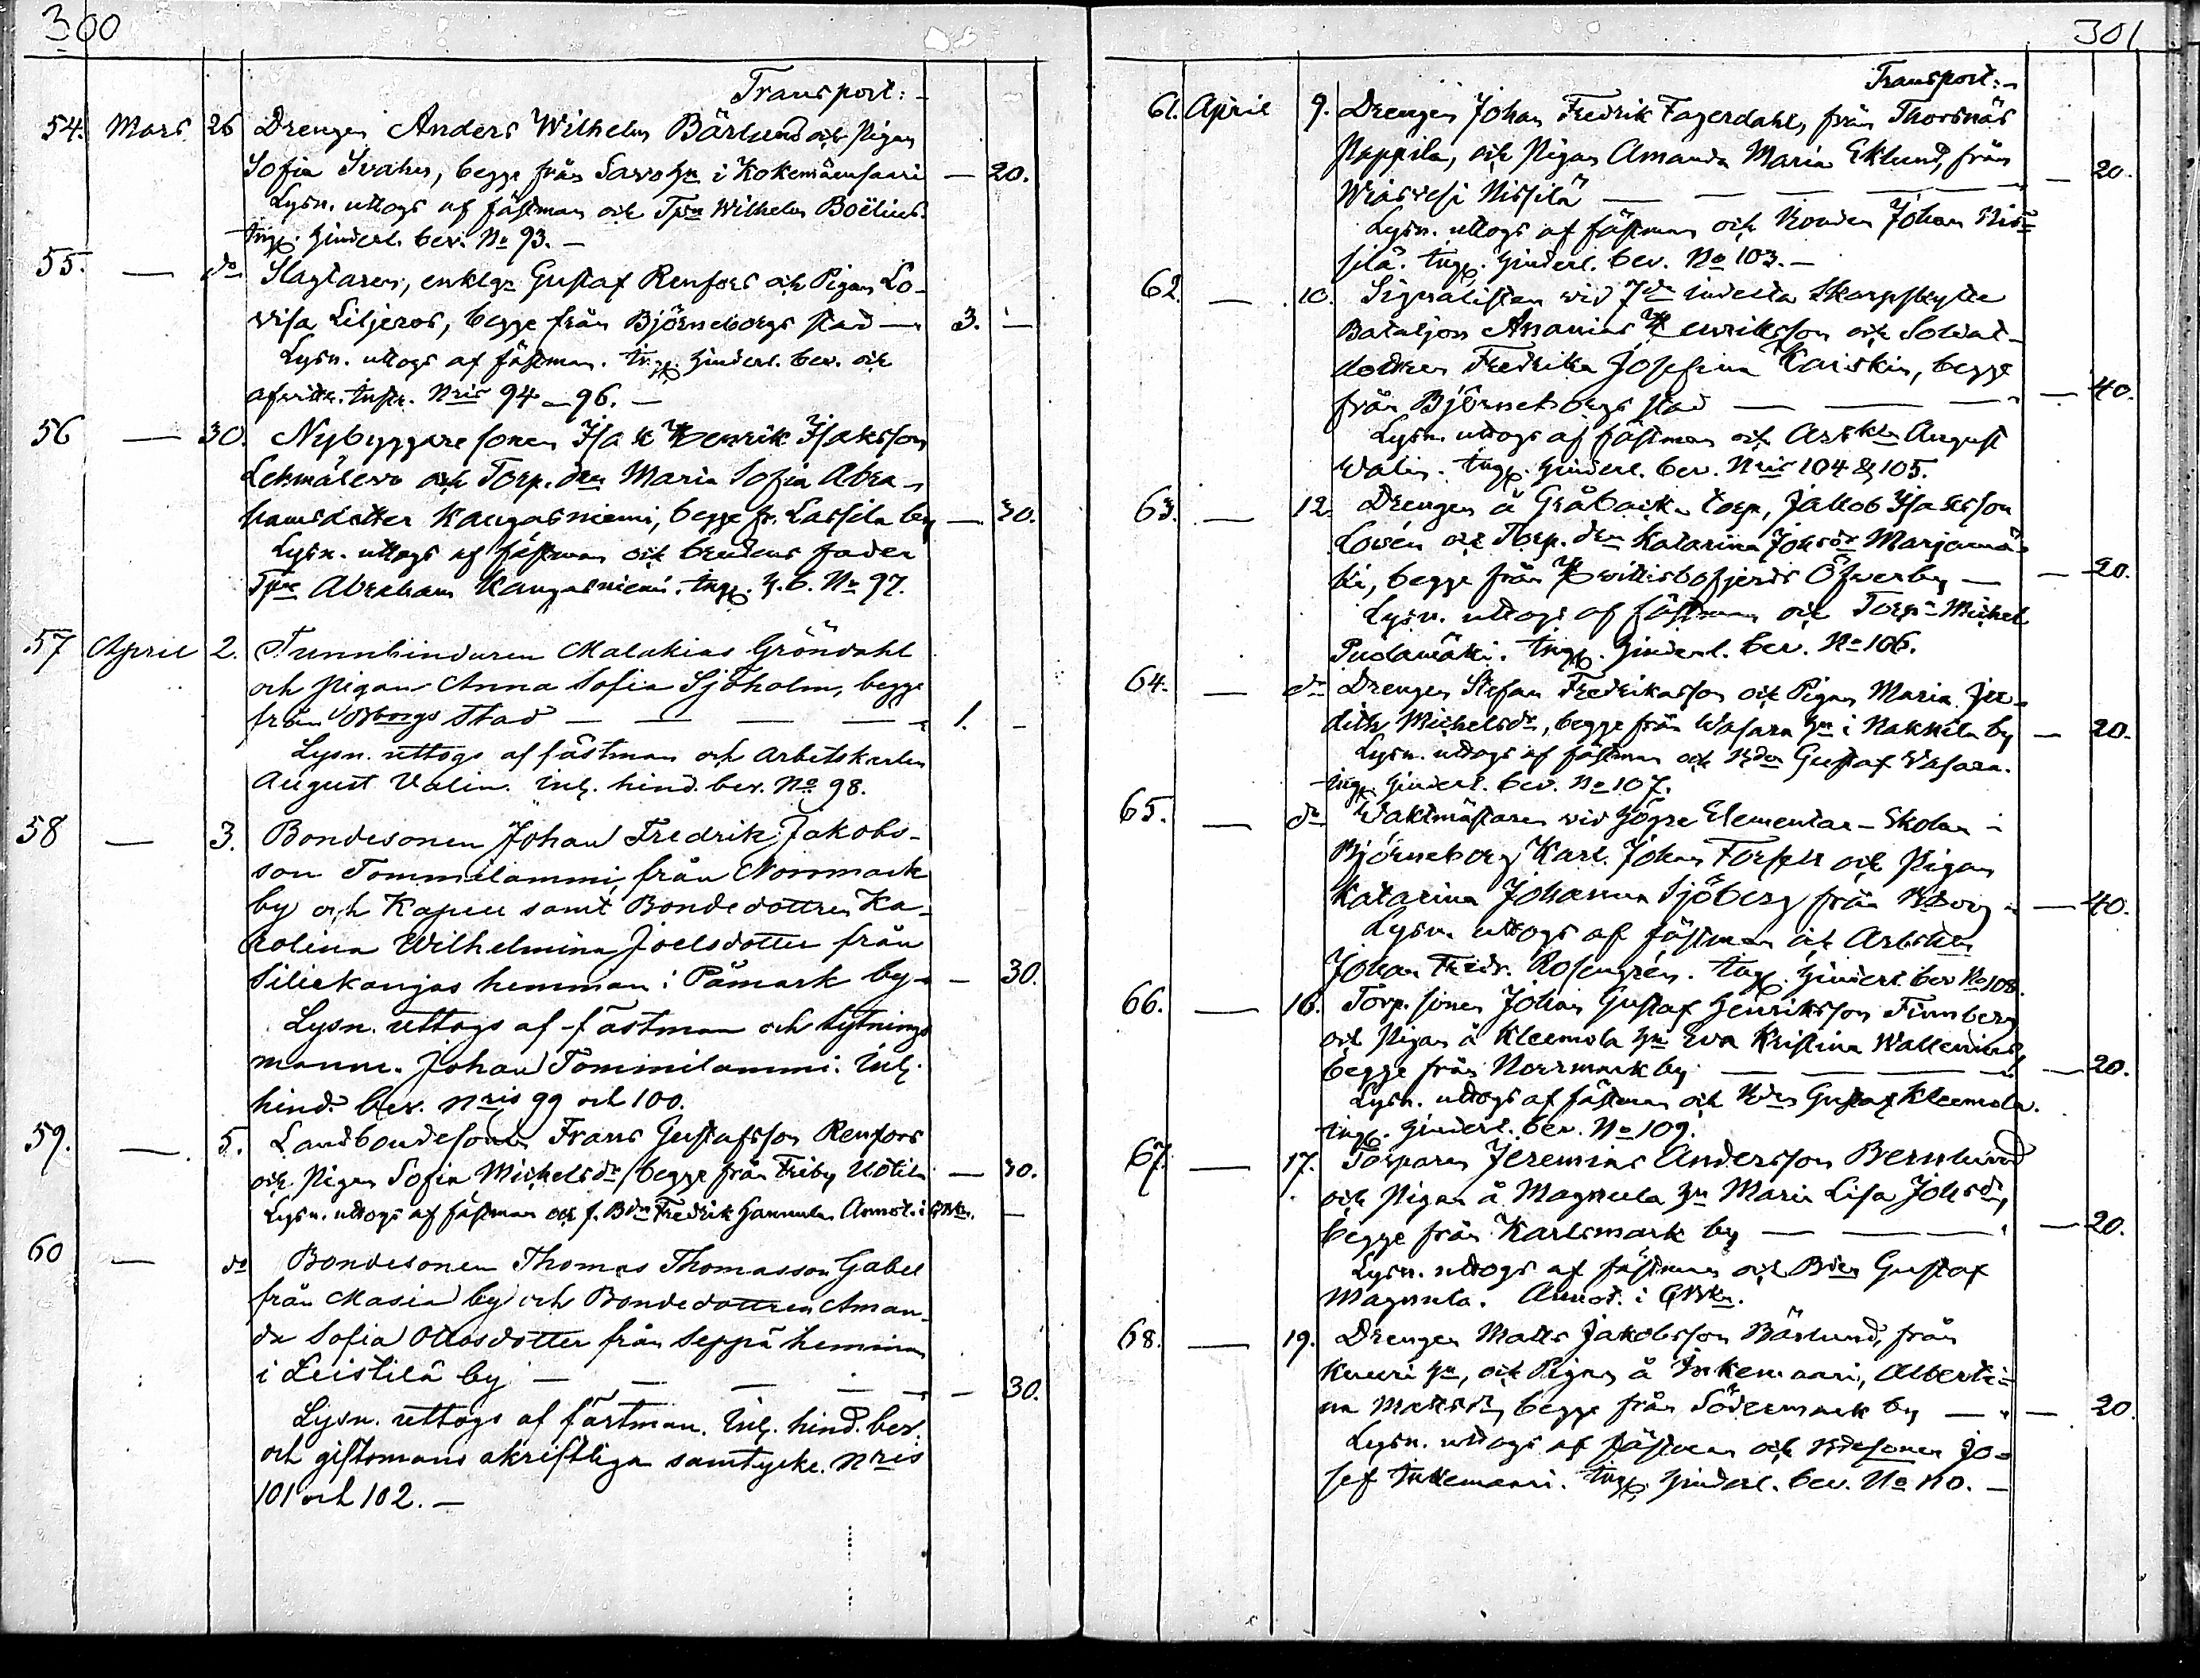 300
Transport:-
54. Mars 26 Drengen Anders Wilhelm Bärlund och Pigan
Sofia Svahn, begge från Savo hn i Kokemäensaari — 20.
Lysn. uttogs af fästman och Tpn Wilhelm Boëlius.
Ingg. hinderl. bev. No 93.—
55. — do Slagtaren, enklgn Gustaf Renfors och Pigan Lo-
visa Liljeros, begge från Björneborgs stad — 3. —
Lysn. uttogs af fästman. Ingg. hinderl. bev. och
afvittr. instr. Nris 94–96. —
56 — 30. Nybyggaresonen Isak Henrik Isaksson
Lehmälevo och Torp. dn Maria Sofia Abra-
hamsdotter Kangasniemi, begge fr. Lassila by — 30.
Lysn. uttogs af fästman och brudens fader
Tpn Abraham Kangasniemi. Ingg. h. b. No 97.
57 April 2. Tunnbindaren Malakias Gröndahl
och pigan Anna Sofia Sjöholm, begge
från Bborgs stad — — — 1. —
Lysn. uttogs af fästman och arbetskarlen
August Valin. Inlg. hind. bev. No 98.
58 — 3. Bondesonen Johan Fredrik Jakobs-
son Tommilammi, från Norrmark
by och Kapell samt Bondedottren Ka-
rolina Wilhelmina Joelsdotter från
Siliekangas hemman i Påmark by — 30.
Lysn. uttogs af fästman och lytnings
mannen Johan Tommilammi. Inlg.
hind. bev. nris 99 och 100.
59. — 5. Landbondesonen Frans Gustafsson Renfors
och Pigan Sofia Michelsdr, begge från Friby Uotila — 30.
Lysn. uttogs af fästman och f. Bdn Fredrik Hannula. Annot. i GBkn. —
60 — do Bondesonen Thomas Thomasson Gabel
från Masia by och Bondedottren Aman-
da Sofia Ottosdotter från Seppä hemman
i Leistilä by — — — — 30.
Lysn. uttogs af fästman. Inlg. hind. bev.
och giftomans skriftliga samtycke. nris
101 och 102. —
301
Transport:-
61. April 9. Drengen Johan Fredrik Fagerdahl, från Thorsnäs
Pappila, och Pigan Amanda Maria Eklund, från
Wiasvesi Nissilä — — — — 20.
Lysn. uttogs af fästman och Bonden Johan Nis-
silä. Ingg. hinderl. bev. No 103.—
62. — 10. Signalisten vid 7de indelta Skarpskytte
Bataljon Ananias Henriksson och Soldat-
dottren Fredrika Josefina Kaiskin, begge
från Björneborgs stad — — — 40.
Lysn. uttogs af fästman och Arbkln August
Walin. Ingg. hinderl. bev. Nris 104 & 105.
63. — 12. Drengen å Gråbacka torp, Jakob Isaksson
Lovén och Torp. dn Katarina Johsdr Marjamä-
ki, begge från Hvittisbofjerds Öfverby — — 20.
Lysn. uttogs af fästman och Torpn Michel
Pudamäki. Ingg. hinderl. bev. No 106.
64. — do Drengen Stefan Fredriksson och Pigan Maria Ju-
dith Michelsdr, begge från Wasara hn i Nakkila by — 20.
Lysn. uttogs af fästman och Bden Gustaf Wasara.
Ingg. hinderl. bev. No 107.
65. — do Waktmästaren vid högre Elementar-Skolan i
Björneborg Karl Johan Forsell och Pigan
Katarina Johanna Sjöberg från Bborg — 40.
Lysn. uttogs af fästman och Arbkln
Johan Fredr. Rosengrén. Ingg. hinderl. bev No 108.
66. — 16. Torp. sonen Johan Gustaf Henriksson Finnberg
och Pigan å Kleemola hn Eva Kristina Wallenius,
begge från Norrmark by — — — 20.
Lysn. uttogs af fästman och Bden Gustaf Kleemola.
Ingg. hinderl. bev. No 109.
67. — 17. Torparen Jeremias Andersson Bernlund
och Pigan å Magnula hn Maria Lisa Johsdr,
begge från Karlsmark by — — — 20.
Lysn. uttogs af fästman och Bden Gustaf
Magnula. Annot. i GBkn.
68. — 19. Drengen Matts Jakobsson Bärlund, från
Knuuri hn, och Pigan å Inkenmaari, Alberti-
na Mattsdr, begge från Södermark by — — 20.
Lysn. uttogs af fästman och Bdesonen Jo-
sef Inkenmaari. Ingg. hinderl. bev. No 110. —